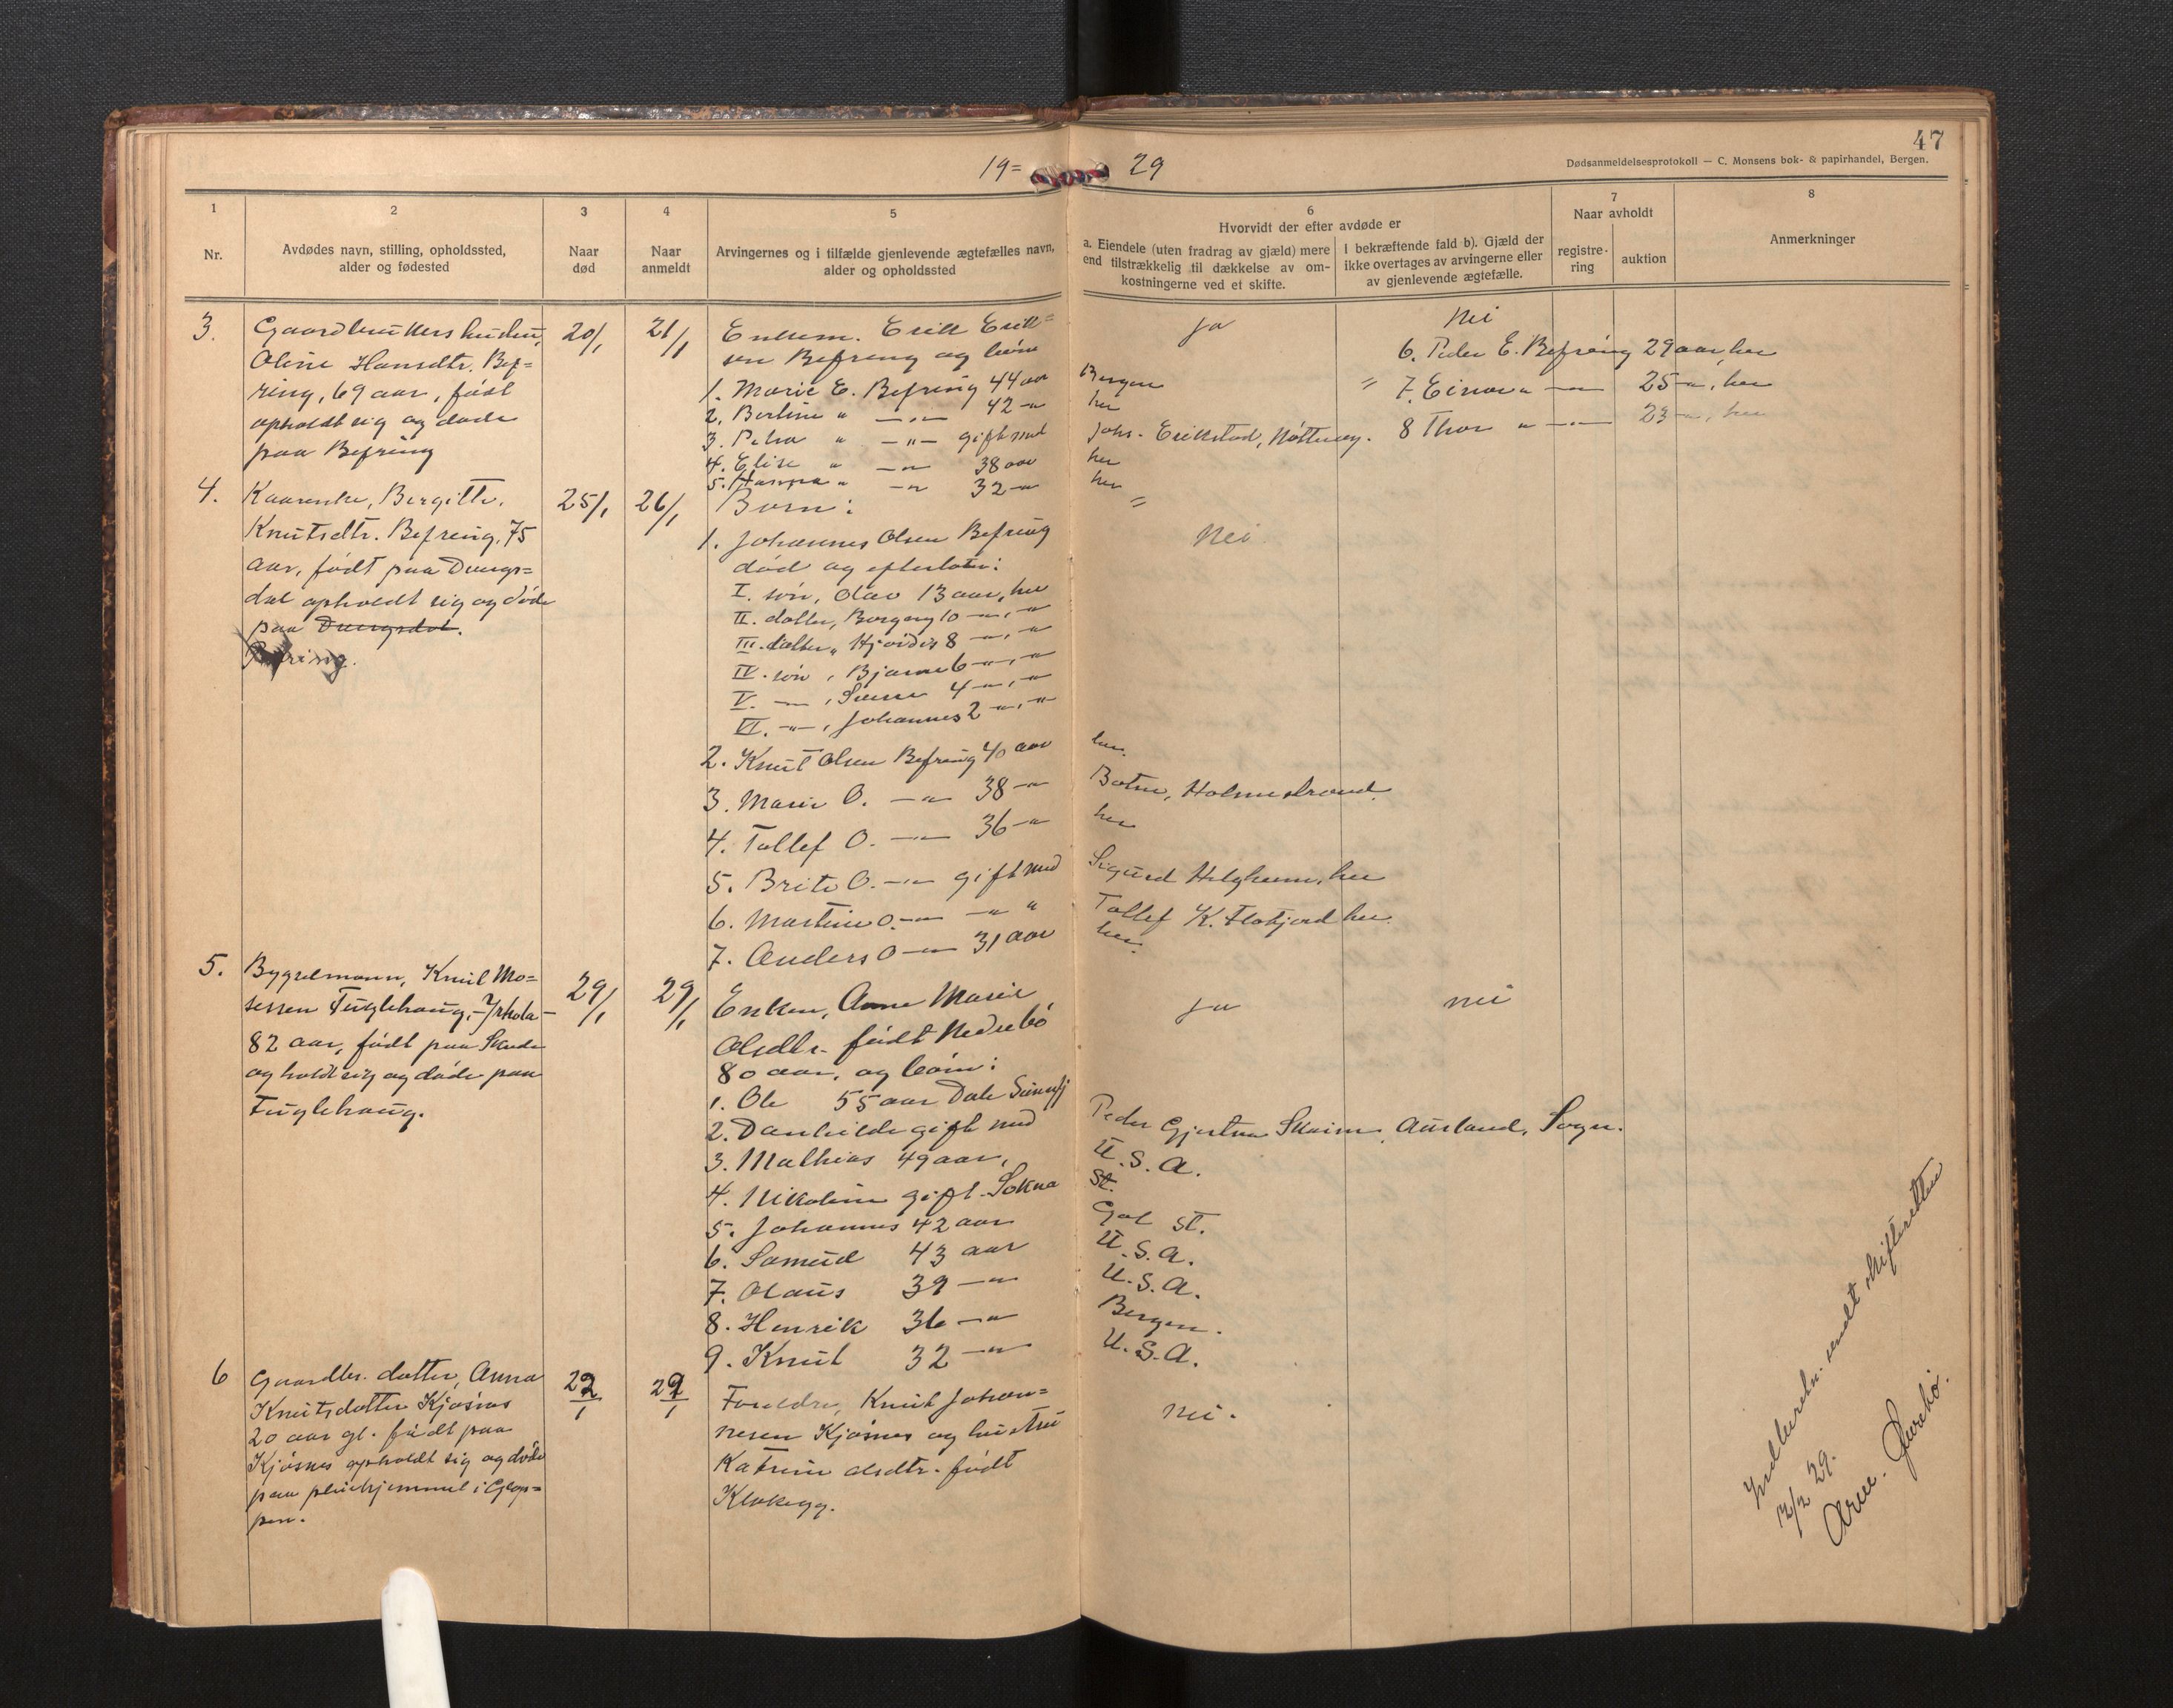 47
Dødsanmeldelsesprotokoll — C. Monsens bok- & papirhandel, Bergen.
19= 29
1
Nr.
2
Avdødes navn, stilling, opholdssted,
alder og fødested
3
Naar
død
4
Naar
anmeldt
5
Arvingernes og i tilfælde gjenlevende ægtefælles navn,
alder og opholdssted
6
Hvorvidt der efter avdøde er
a. Eiendele (uten fradrag av gjæld) mere
end tilstrækkelig til dækkelse av om-
kostningerne ved et skifte.
I bekræftende fald b). Gjæld der
ikke overtages av arvingerne eller
av gjenlevende ægtefælle.
7
Naar avholdt
registre-
ring
auktion
8
Anmerkninger
3.
Gaardbrukers hustru,
Oline Hansdtr. Bef=
ring, 69 aar, født
opholdt sig og døde
paa Befring
20/1
21/1
Enkem. Erik Erik=
sen Befring og børn
1. Marie E. Befring 44 aar Bergen
2. Berline " —"— 42 —" her
3. Petra " —"— gift med Johs. Erikstad,
4. Elise " —" 38 aar her
5. " —" 32 —" her
ja
nei
6. Peder E. Befring 29 aar, her
" 7. Einar " —"— 25 —", her
8 Thor " —"— 23 —", her
4.
Kaarenke, Bergitte
Knutsdtr. Befring, 75
aar, født paa Dvergs=
dal opholdt sig og døde
paa Dvergsdal.
Befring.
25/1
26/1
Born: "
1. Johannes Olsen Befring
død og efterlater:
I. søn, Olav 13 aar, her
II. datter, Borgny 10 —", —"
III. datter " Hjørdis 8 —", —"
IV. søn, Bjarne 6 —", —"
V. —"—, Sverre 4 —", —"
VI. —"—, Johannes 2 —", —"
2. Knut Olsen Befring 40 aar her.
3. Marie O. —"— 38 —" Botne, Holmestrand.
4. Tollef O. —"— 36 —" her
5. Brite O. —"— gift med Sigurd Helgheim, her
6. Martine O. —"— —" " Tollef K. Flatjord her.
7. Anders O —"— 31 aar her.
Nei
5.
Bygselmann, Knut Mo=
sessen Fuglehaug,
82 aar, født paa
og holdt sig og døde paa
Fuglehaug.
29/1
29/1
Enken, Anne Marie
Olsdtr. født Nedrebø
80 aar, og børn:
1. Ole 55 aar Dale Sunnfj
2. Danhilde gift med Peder Gjertsen Skaim, Aurland, Sogn.
3. Mathias 49 aar, U.S.A.
4. Nikoline gift. Sokna St.
5. Johannes 42 aar Gol St.
6. Samuel 43 aar U.S.A.
7. Olaus 39 —" U.S.A.
8. Henrik 36 —" Bergen.
9. Knut 32 —" U.S.A.
ja
nei
6
Gaardbr. datter, Anna
Knutsdotter Kjøsnes
20 aar gl. født paa
Kjøsnes opholdt sig og døde
paa pleiehjemmet i Glop=
pen.
22/1
29/1
Foreldre, Knut Johan=
nesen Kjøsnes og hustru
Katrine Olsdtr. født
Klakegg.
nei.
Indberetn. sendt skifteretten
2/2 29.
Arne